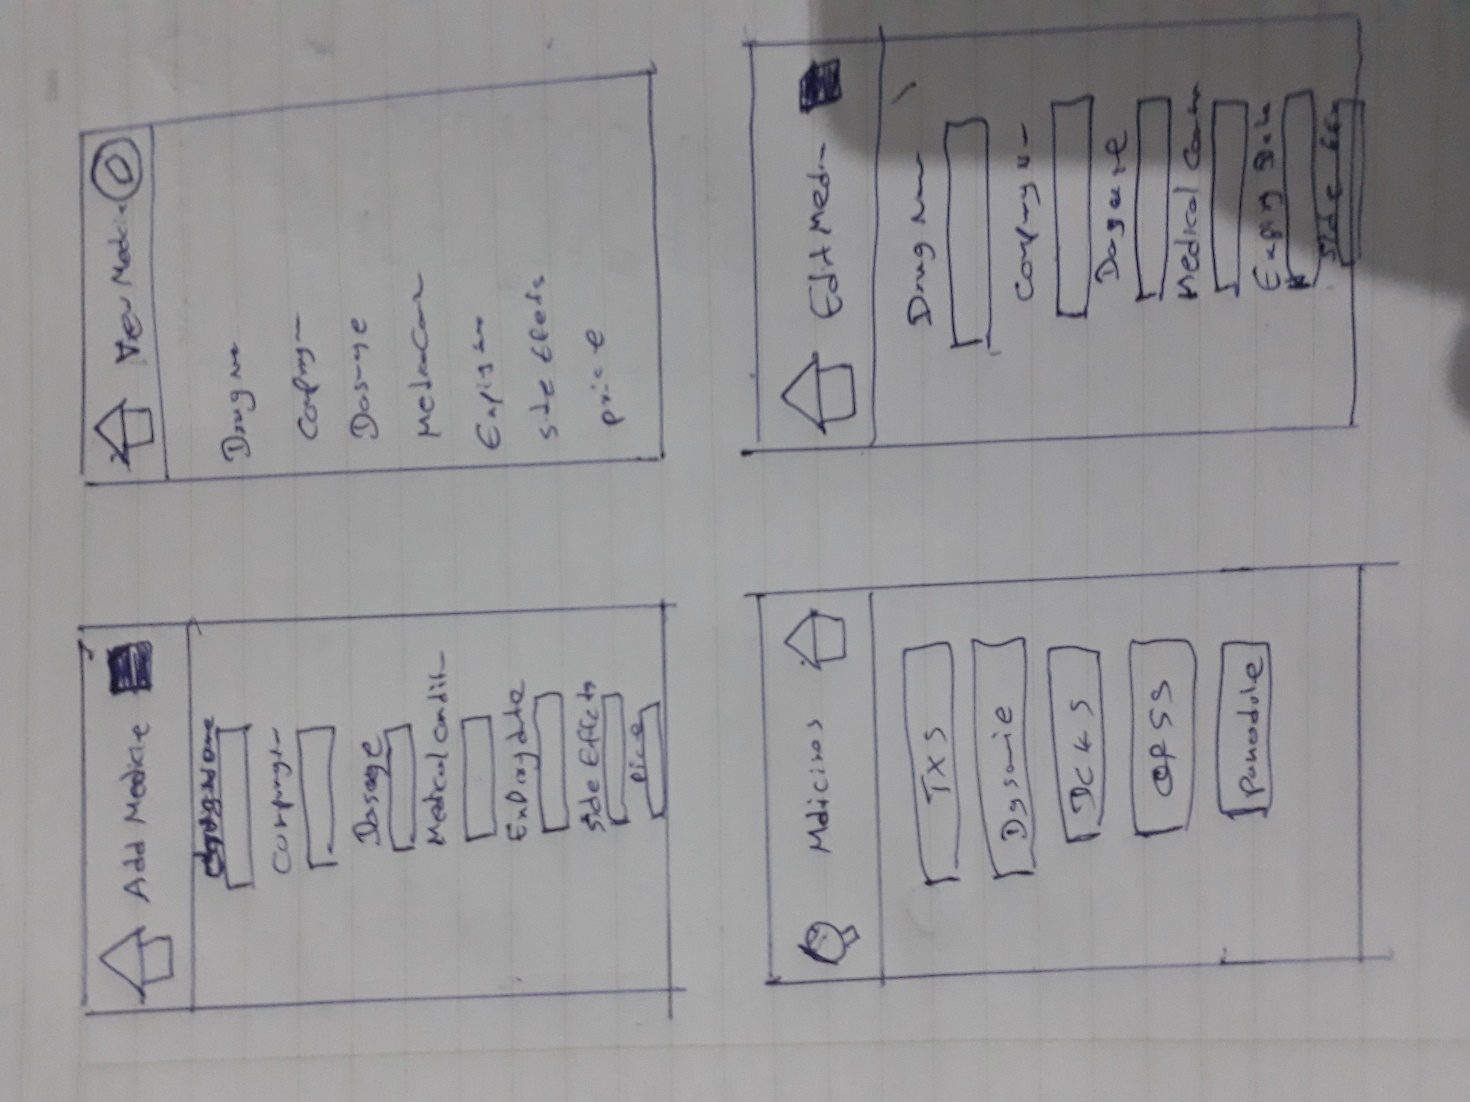 Add Medicie
Company
Dosage
Medical Condit
Expiry date
Side Effects
Pice
View Medicie
Drug na
Company
Dosage
Medical Con
Side Effects
price
Mdicines
TXS
Dysonie
DC4S
OPSS
Panodile
Edit Medi
Drug Nam
Company N
Dosage
Medical Con
Expiry Date
Side Effe